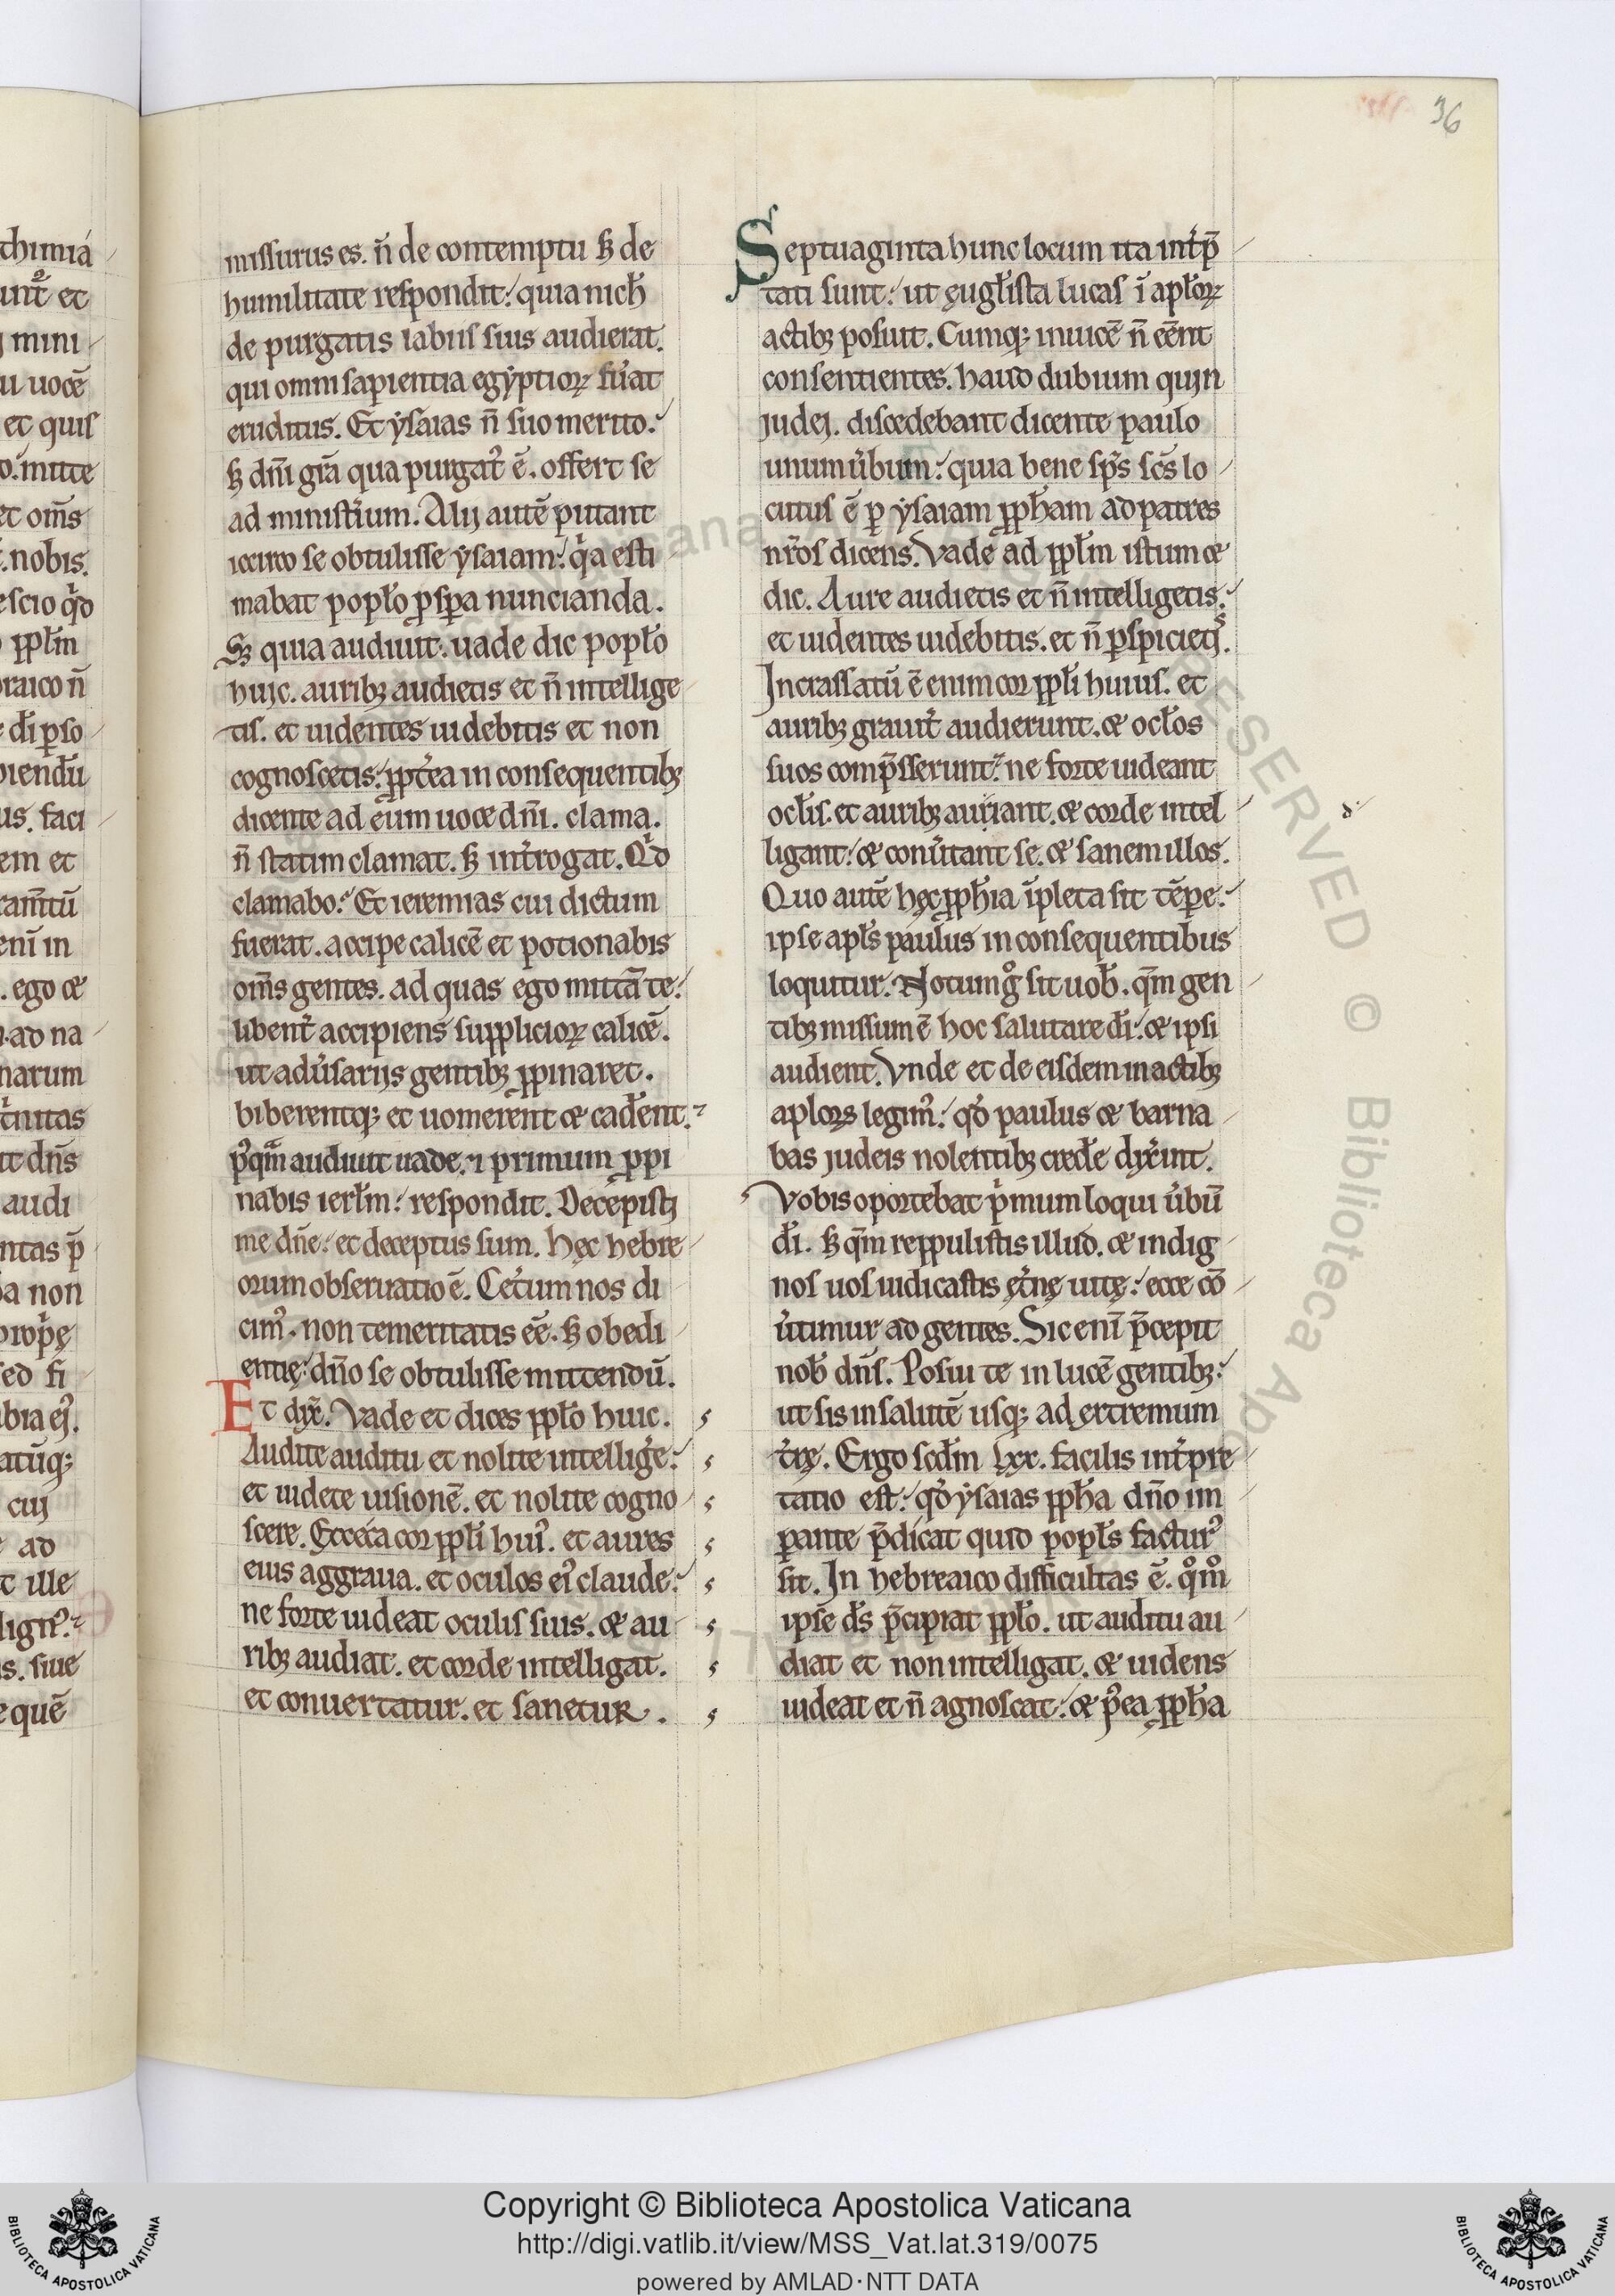 36
missurus es. n̄ de contemptu ꝫ de
humilitate respondit: quia nich̄
de purgatis labiis suis audierat.
qui omni sapientia egẏptioꝝ fu̾at
eruditus. Et ẏsaias n̄ suo merito.
ꝫ dn̄i gr̄a qua purgat᷒ ē. offert se
ad minist̾ium. Alij autē putant
iccirco se obtulisse ẏsaiam: qͥa esti
mabat popl̓o ꝓsꝑa nuncianda.
Sꝫ quia audiuit. uade dic popl̓o
huic. auribꝫ audietis et n̄ intellige
tis. et uidentes uidebitis et non
cognoscetis: ꝓpt̾ea in consequentibꝫ
dicente ad eum uoce dn̄i. clama.
n̄ statim clamat. ꝫ int̾rogat. Qͥd
clamabo. Et ieremias cui dictum
fuerat. accipe calicē et potionabis
om̄s gentes. ad quas ego mittā te:
libent̾ accipiens suppliciorꝝ calicē.
ut adu̾sarijs gentibꝫ ꝓpinaret.
biberentqꝫ et uomerent ⁊ cad̓ent.
p᷒qͣm audiuit uade. ⁊ primum ꝓpi
nabis ierl̓m: respondit. Decepistj
me dn̄e: et deceptus sum. hęc hebre
orum obseruatio ē. Cet̾um nos di
cim᷒. non temeritatis eē. ꝫ obedi
entię: dn̄o se obtulisse mittendū.
Et dyx̄. Vade et dices ppl̓o huic.
Audite auditu et nolite intellig̾e:
et uidete uisionē. et nolite cogno
scere. Excęca cor ppl̓i hui᷒. et aures
eius aggraua. et oculos ei᷒ claude:
ne forte uideat oculis suis. ⁊ au
ribꝫ audiat. et corde intelligat.
et conuertatur. et sanetur.
Septuaginta hunc locum ita int̾p̄
tati sunt: ut ęugl̓ista lucas ī apl̓oꝝ
actibꝫ posuit. Cumqꝫ inuicē n̄ eēnt
consentientes. haud dubium quin
judej. discedebant dicente paulo
unum u̾bum: quia bene sp̄s sc̄s lo
cutus ē ꝑ ẏsaiam ꝓph̓am ad patres
nr̄os dicens. Vade ad ppl̓m istum ⁊
dic. Aure audietis et n̄ intelligetis:
et uidentes uidebitis. et n̄ ꝑspicietis.
Incrassatū ē enim cor ppl̓i huius. et
auribꝫ grauit̾ audierunt. ⁊ ocl̓os
suos comp̄sserunt: ne forte uideant
ocl̓is. et auribꝫ auriant. ⁊ corde intel
ligant: ⁊ conu̾tant se. ⁊ sanem illos.
Quo autē hęc ꝓph̓ia īpleta sit tēꝑe:
ipse apl̓s paulus in consequentibus
loquitur. Notum gͦ sit uob̓. qm̄ gen
tibꝫ missum ē hoc salutare dī: ⁊ ipsi
audient. Vnde et de eisdem in actibꝫ
aplorꝝ legim᷒: qd̓ paulus ⁊ barna
bas judeis nolentibꝫ cred̓e dyx̾int.
Vobis oportebat pͥmum loqui u̾bū
dī. ꝫ qm̄ reppulistis illud. ⁊ indig
nos uos iudicastis ęt̾nę uitę: ecce cō
u̾timur ad gentes. Sic enī p̄cepit
nob̓ dn̄s. Posui te in lucē gentibꝫ:
ut sis in salutē usqꝫ ad extremum
t̾rę. Ergo scd̄m Lxx. facilis int̾pre
tatio est: qd̓ ẏsaias ꝓph̓a dn̄o im
ꝑante p̄dicat quid popl̓s factur᷒
sit. In hebreaico difficultas ē. qͦmͦ
ipse ds̄ p̄cipiat ppl̓o. ut auditu au
diat et non intelligat. ⁊ uidens
uideat et n̄ agnoscat: ⁊ p᷒ea ꝓph̓a
Copyright © Biblioteca Apostolica Vaticana
http://digi.vatlib.it/view/MSS_Vat.lat.319/0075
powered by AMLAD·NTT DATA